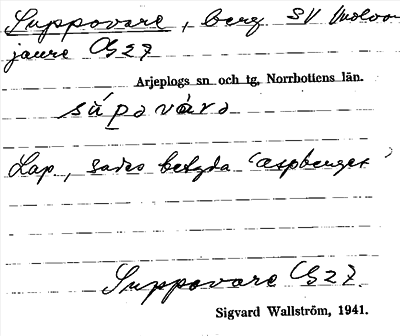 Suppovare, berg SV
jaure G27
Arjeplogs sn och tg, Norrbottens län.
súpavàrɔ
Lap., sades betyda 'aspberget'
Suppovare G27.
Sigvard Wallström, 1941.